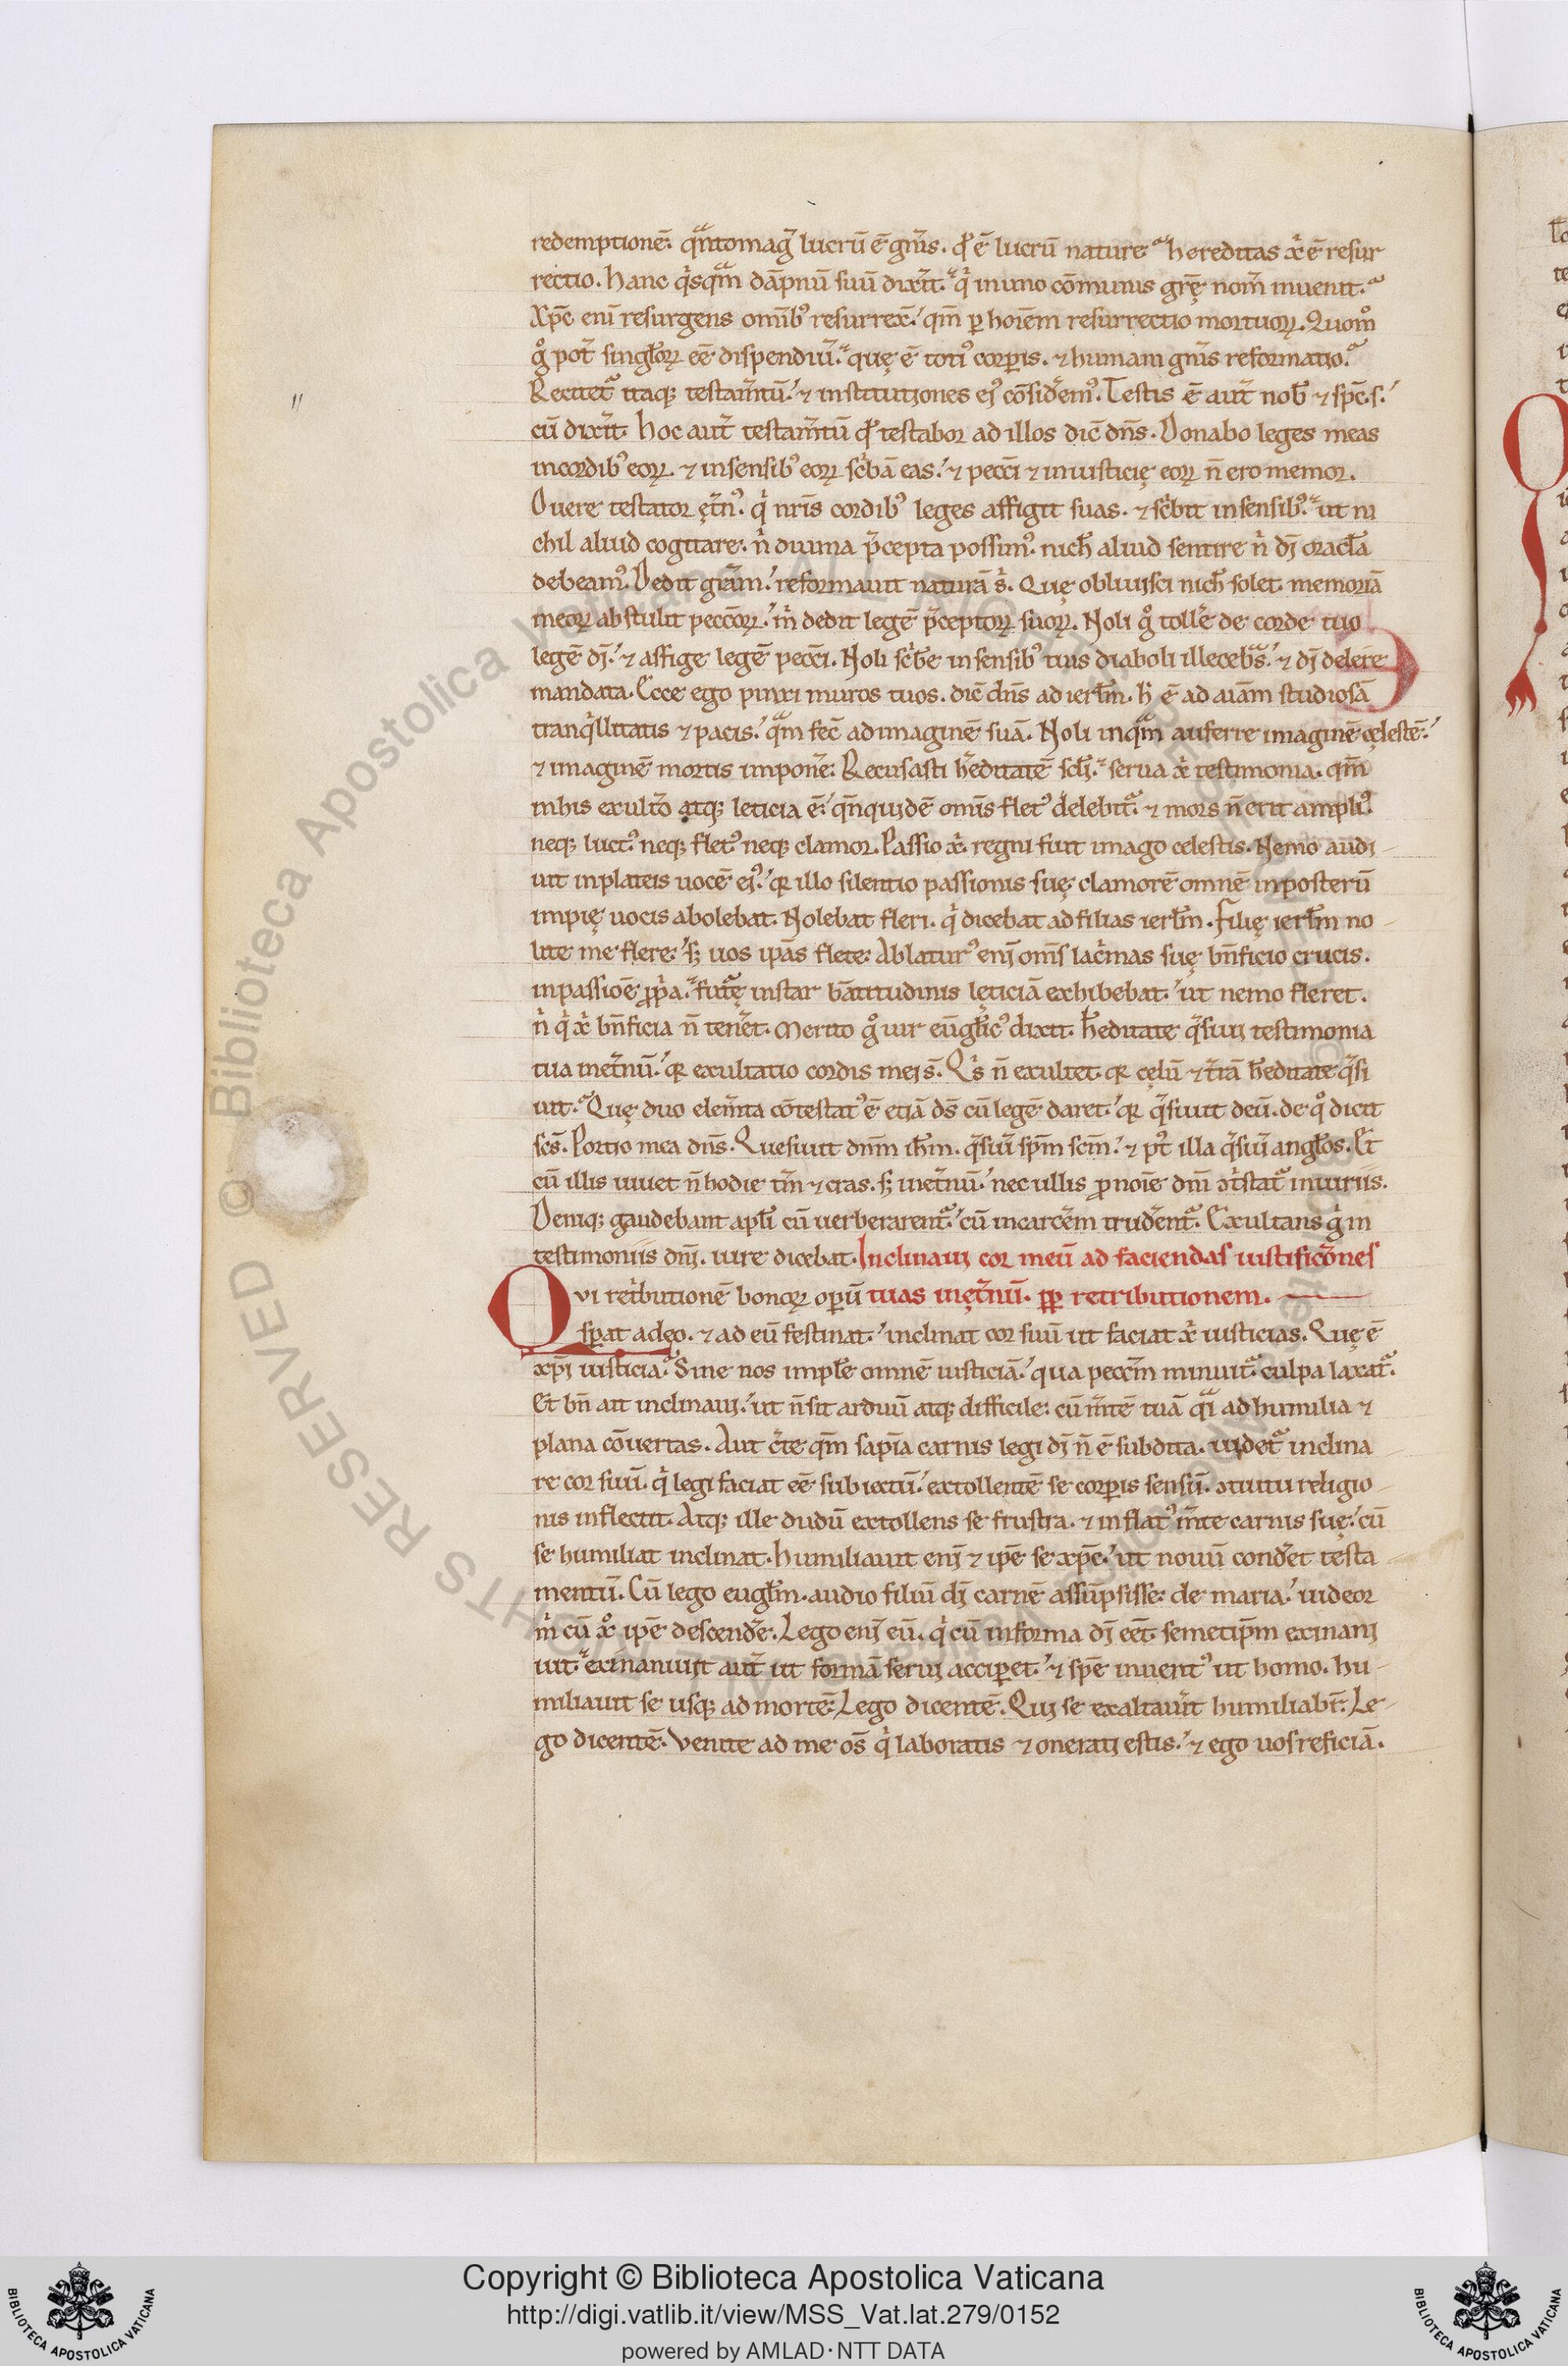 redemptionē. qͣntomagͥ lucrū ē gn̄is. qd̓ ē lucrū nature hereditas xp̄i ē resur
rectio. hanc qͥsqͣm dāpnū suū dixit̄. qͥ in uno cōmunis grē nom̄ inuenit.
Xpc̄ eni resurgens omībꝰ resurrex̄. qm̄ ꝑ hoīem resurrectio mortuoꝝ. Quom̊
g̊ pot̄ singl̄oꝝ eē dispendiū. quę ē totiꝰ corꝑis. ⁊ humani gn̄is reformatio.
Recitet̄ itaqꝫ testam̄tū. ⁊ institutiones eiꝰ cōsiderem̄ꝰ. Testis ē aut̄ nob̄ ⁊ spc̄ s.
cū dixit̄. hoc aut̄ testam̄tū qd̓ testabor ad illos dic̄ dn̄s. Donabo leges meas
incordibꝰ eoꝝ. ⁊ insensibꝰ eoꝝ scͥbā eas. ⁊ pecc̄i ⁊ iniusticię eoꝝ n̄ ero memor.
O uere testator ęt̄nꝰ. qͥ nr̄is cordibꝰ leges affigit suas. ⁊ scͥbit insensibꝰ. ut ni
chil aliud cogitare. nͥ diuina p̄cepta possimꝰ. nich̄ aliud sentire nͥ dī oracl̄a
debeamꝰ. Dedit grām. reformauit naturā s. Quę obliuisci nich̄ solet. memoriā
meoꝝ abstulit pecc̄oꝝ. mͥ dedit legē p̄ceptoꝝ suoꝝ. Noli g̊ toll̄e de corde tuo
legē dī. ⁊ affige legē pecc̄i. Noli scͥb̄e insensibꝰ tuis diaboli illecebͣs. ⁊ dī delere
mandata. Ecce ego pinxi muros tuos. dic̄ dn̄s ad ierl̄m. hͥ ē ad aīam studiosā
tranqͥllitatis ⁊ pacis. qͣm fec̄ ad imaginē suā. Noli inqͣm auferre imaginē cęlestē.
⁊ imaginē mortis impon̄e. Recusasti h̄editatē scl̄i. serua xp̄i testimonia. qm̄
inhis exult̄o atqꝫ leticia ē. qn̄quidē omīs fletꝰ delebit̄. ⁊ mors n̄ erit ampliꝰ.
neqꝫ luctꝰ. neqꝫ fletꝰ neqꝫ clamor. Passio xp̄i. regni fuit imago celestis. Nemo audi
uit inplateis uocē eiꝰ. qr illo silentio passionis suę clamorē omnē inposterū
impię uocis abolebat. Nolebat fleri. qͥ dicebat ad filias ierl̄m. Filię ierl̄m no
lite me flere. sꝫ uos ipās flete. Ablaturꝰ enī omīs lacͥmas suę bn̄ficio crucis.
inpassiōe ꝓpͥa. futͣę instar b̄atitudinis lęticiā exhibebat. ut nemo fleret.
nͥ qͥ xp̄i bn̄ficia n̄ ten̄et. Merito g̊ uir eūgl̄icꝰ dixit. H̄editate q̄siui testimonia
tua inet̄nū. qr exultatio cordis mei s̄. Qͥs n̄ exultet. qr cęlū ⁊ t̄rā h̄editate q̄si
uit. Quę duo elem̄ta cōtestatꝰ ē etiā ds̄ cū legē daret. qr q̄siuit deū. de q̊ dicit
scs̄. Portio mea dn̄s. Quesiuit dn̄m ih̄m. q̄siuit̄ spm̄ scm̄. ⁊ pt̄ illa q̄siuit̄ angl̄os. Et
cū illis uiuet n̄ hodie tm̄ ⁊ cras. sꝫ inet̄nū. nec ullis ꝓ noīe dn̄i ↄtͥstat̄ iniuriis.
Deniqꝫ gaudebant apl̄i cū uerberarent̄. cū incarc̄em trud̄ent̄. Exultans g̊ in
testimoniis dn̄i. iure dicebat. Inclinaui cor meū ad faciendas iustificōnes
tuas inęt̄nū. ꝓp retributionem.
Qvi retͥbutionē bonoꝝ oꝑū
sꝑat a deo. ⁊ ad eū festinat. inclinat cor suū ut faciat xp̄i iusticias. Quę ē
xp̄i iusticia. Sine nos impl̄e omnē iusticiā. qua pecc̄m minuit̄. culpa laxat̄.
Et bn̄ ait inclinaui. ut n̄ sit arduū atqꝫ difficile. cū m̄tē tuā qͣi ad humilia ⁊
plana cōuertas. Aut c̄te qm̄ sapīa carnis legi dī n̄ ē subdita. uidet̄ inclina
re cor suū. qͥ legi faciat eē subiectū. extollentē se corꝑis sensū. ↄtuitu religio
nis inflectit. Atqꝫ ille dudū extollens se frustra. ⁊ inflatꝰ m̄te carnis suę. cū
se humiliat inclinat. humiliauit enī ⁊ ipē se xpc̄. ut nouū cond̄et testa
mentū. Cū lego eugl̄m. audio filiū dī carnē assūpsisse de maria. uideor
mͥ cū xp̊ ipē descend̄e. Lego enī eū. qͥ cū informa dī eēt. semetip̄m exinani
uit. exinaniuit aut̄ ut formā serui acciꝑet. ⁊ spē inuentꝰ ut homo. hu
miliauit se usqꝫ ad mortē. Lego dicentē. Qui se exaltau̓it humiliabit̄. Le
go dicentē. Venite ad me os̄ qͥ laboratis ⁊ onerati estis. ⁊ ego uos reficiā.
© Biblioteca Apostolica Vaticana ALL RIGHTS RESERVED
Copyright © Biblioteca Apostolica Vaticana
http://digi.vatlib.it/view/MSS_Vat.lat.279/0152
powered by AMLAD·NTT DATA
BIBLIOTECA APOSTOLICA VATICANA
BIBLIOTECA APOSTOLICA VATICANA